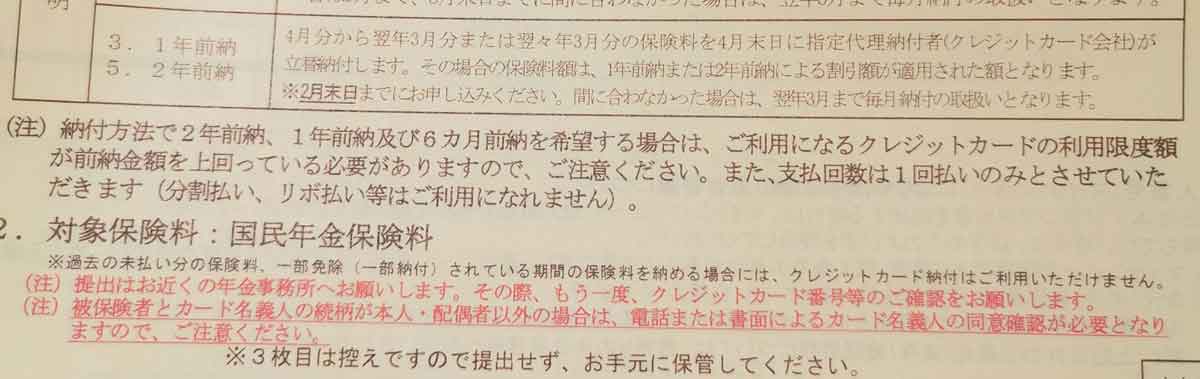 明
3．1年前納
5．2年前納
4月分から翌年3月分または翌々年3月分の保険料を4月末日に指定代理納付者(クレジットカード会社)が
立替納付します。その場合の保険料額は、1年前納または2年前納による割引額が適用された額となります。
※2月末日までにお申し込みください。間に合わなかった場合は、翌年3月まで毎月納付の取扱いとなります。
(注) 納付方法で2年前納、1年前納及び6カ月前納を希望する場合は、ご利用になるクレジットカードの利用限度額
が前納金額を上回っている必要がありますので、ご注意ください。また、支払回数は1回払いのみとさせていた
だきます（分割払い、リボ払い等はご利用になれません）。
2．対象保険料：国民年金保険料
※過去の未払い分の保険料、一部免除（一部納付）されている期間の保険料を納める場合には、クレジットカード納付はご利用いただけません。
(注) 提出はお近くの年金事務所へお願いします。その際、もう一度、クレジットカード番号等のご確認をお願いします。
(注) 被保険者とカード名義人の続柄が本人・配偶者以外の場合は、電話または書面によるカード名義人の同意確認が必要となり
ますので、ご注意ください。
※3枚目は控えですので提出せず、お手元に保管してください。